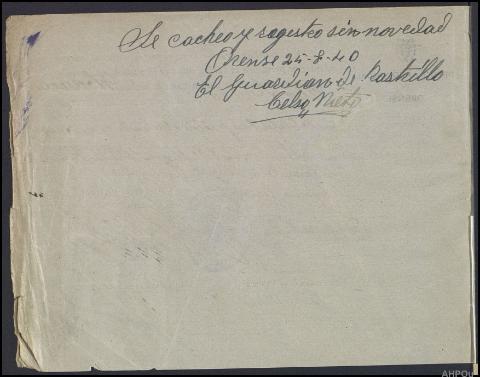 Se cacheo y registro sin novedad
Orense 25-8-40
El Guardian de Rastrillo
Celso Nieto
AHPOu